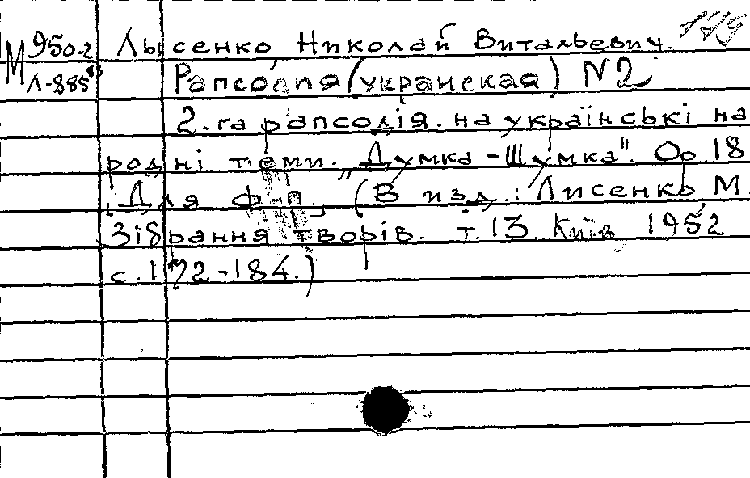 М 950-2 Лысенко Николай Витальевич
Л-885 Рапсодия (украинская) N2
2.га рапсодія. на українські на
родні теми. „Думка-Шумка". Ор 18
[Для ф-п] (В изд.: Лисенко М.
Зібрання творів. т 13 Київ 1952
с. 172-184.)